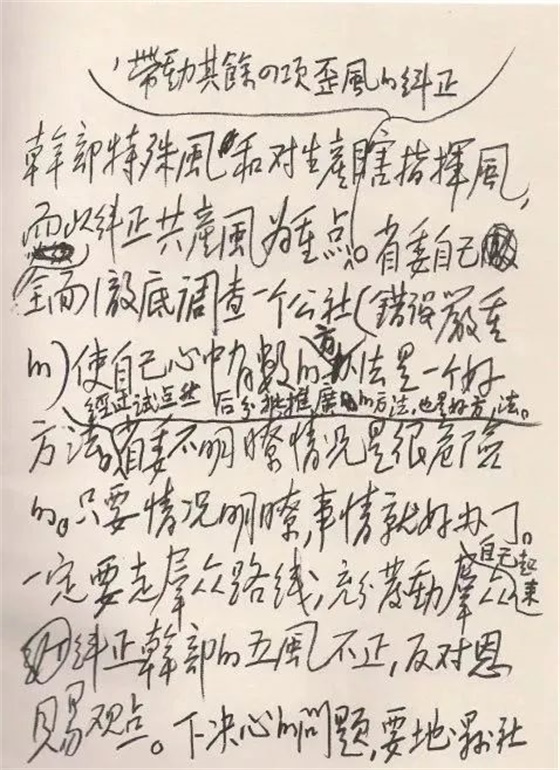 ，带動其餘四项歪風的糾正
幹部特殊風和对生產瞎指揮風，
而以糾正共產風为重点。省委自己
全面徹底调查一个公社（錯误嚴重
的）使自己心中有數的方法是一个好
经过试点然后分批推廣的方法，也是好方法。
方法。省委不明瞭情况是很危险
的。只要情况明瞭，事情就好办了。
一定要走羣众路线，充分發動羣众
自己起来
糾正幹部的五風不正，反对恩
赐观点。下决心的问题，要地、縣、社